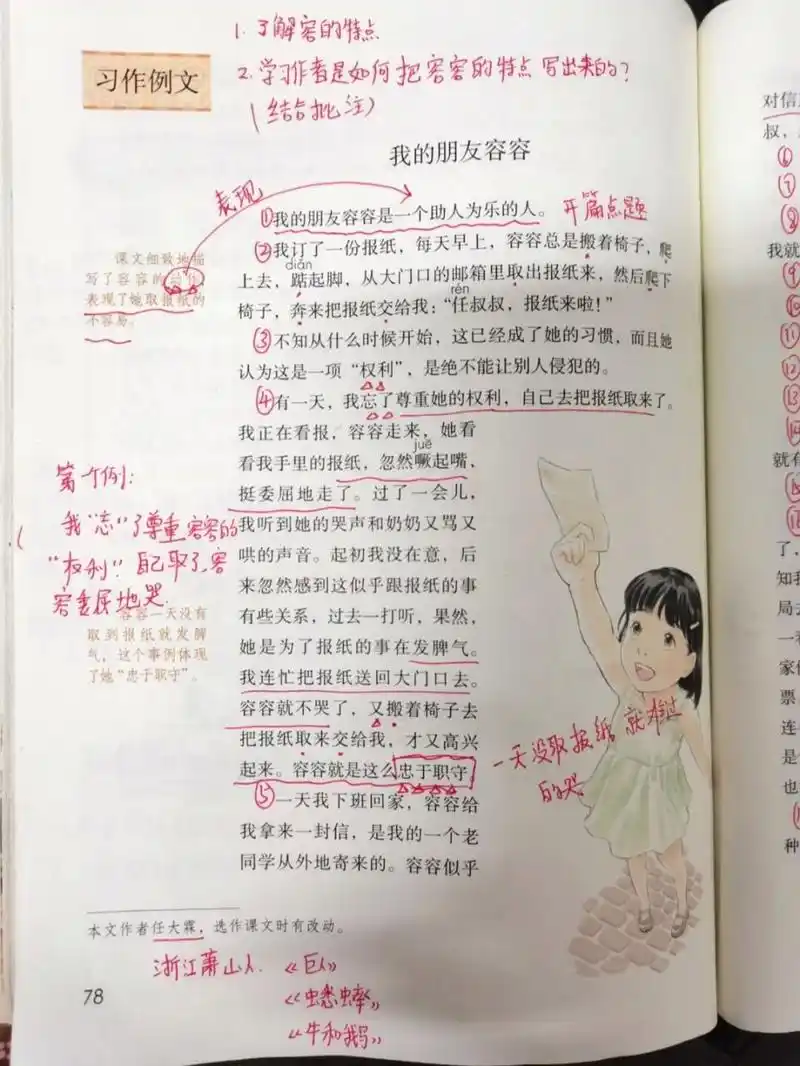 1. 了解容的特点
2. 学习作者是如何把容容的特点写出来的?
(结合批注)
习作例文
我的朋友容容
表现
①我的朋友容容是一个助人为乐的人。 开篇点题
②我订了一份报纸，每天早上，容容总是搬着椅子，爬
diān
上去，踮起脚，从大门口的邮箱里取出报纸来，然后爬下
rén
椅子，奔来把报纸交给我：“任叔叔，报纸来啦！”
课文细致地描
写了容容的动作，
表现了她取报纸的
不容易。
③不知从什么时候开始，这已经成了她的习惯，而且她
认为这是一项“权利”，是绝不能让别人侵犯的。
④有一天，我忘了尊重她的权利，自己去把报纸取来了。
我正在看报，容容走来，她看
juē
看我手里的报纸，忽然噘起嘴，
挺委屈地走了。过了一会儿，
我听到她的哭声和奶奶又骂又
哄的声音。起初我没在意，后
来忽然感到这似乎跟报纸的事
有些关系，过去一打听，果然，
她是为了报纸的事在发脾气。
我连忙把报纸送回大门口去。
容容就不哭了，又搬着椅子去
把报纸取来交给我，才又高兴
起来。容容就是这么忠于职守。
第一个例:
我“忘”了尊重容容的
“权利”自己取了.容
容委屈地哭.
容容一天没有
取到报纸就发脾
气，这个事例体现
了她“忠于职守”。
一天没取报纸就难过
的哭
⑤一天我下班回家，容容给
我拿来一封信，是我的一个老
同学从外地寄来的。容容似乎
本文作者任大霖，选作课文时有改动。
浙江萧山人. 《巨人》
《蟋蟀》
《牛和鹅》
78
对信
叔，
⑥
⑦
⑧
我就
⑨
⑩
⑪
⑫
⑬
⑭
就有
了，
知我
局去
一看
家
票
连
是
也
种